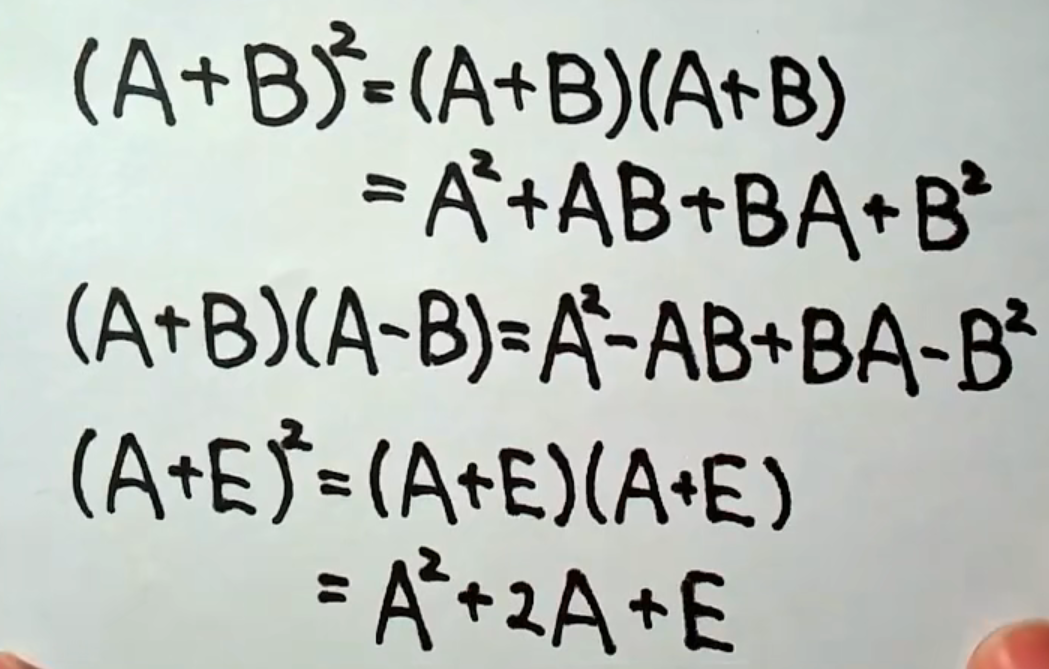 (A+B)²=(A+B)(A+B)
=A²+AB+BA+B²
(A+B)(A-B)=A²-AB+BA-B²
(A+E)²=(A+E)(A+E)
=A²+2A+E